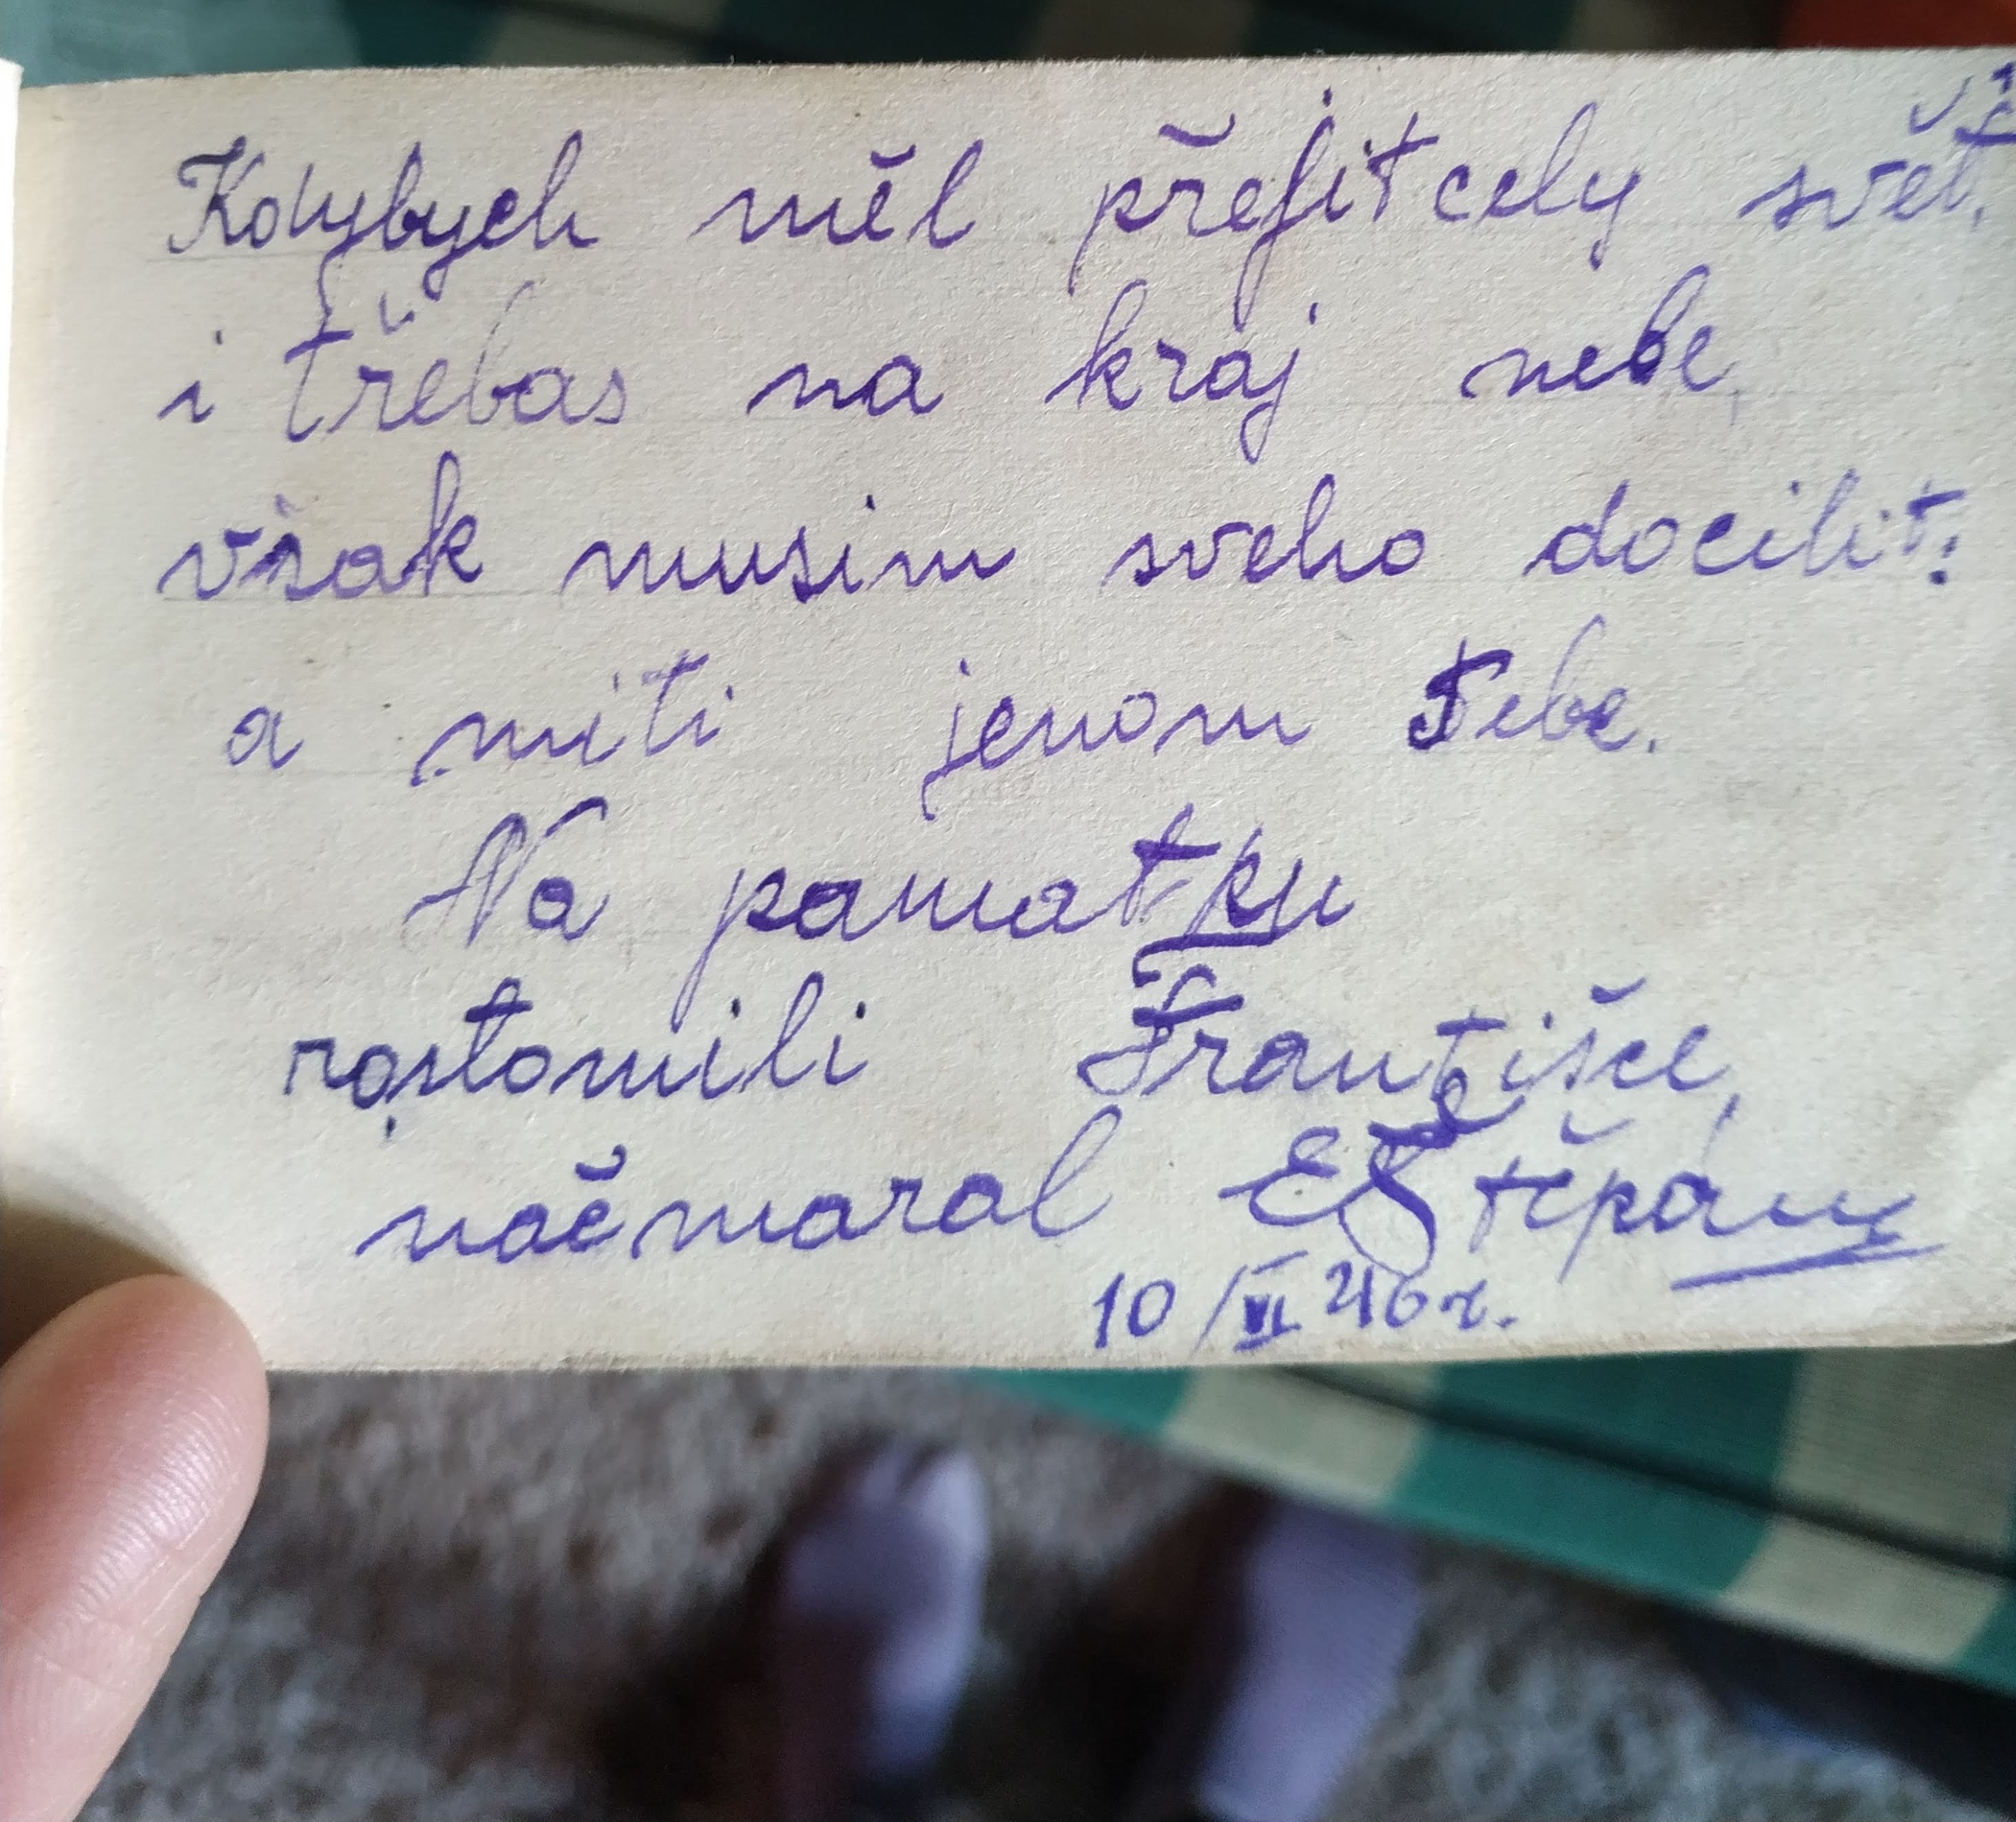 Kdybych měl přejit cely svět,
i třebas na kraj nebe,
však musim sveho docilit:
a miti jenom Tebe.
Na pamatku
rostomili Františce,
načmaral EŠtěpány
10/VI 46 r.